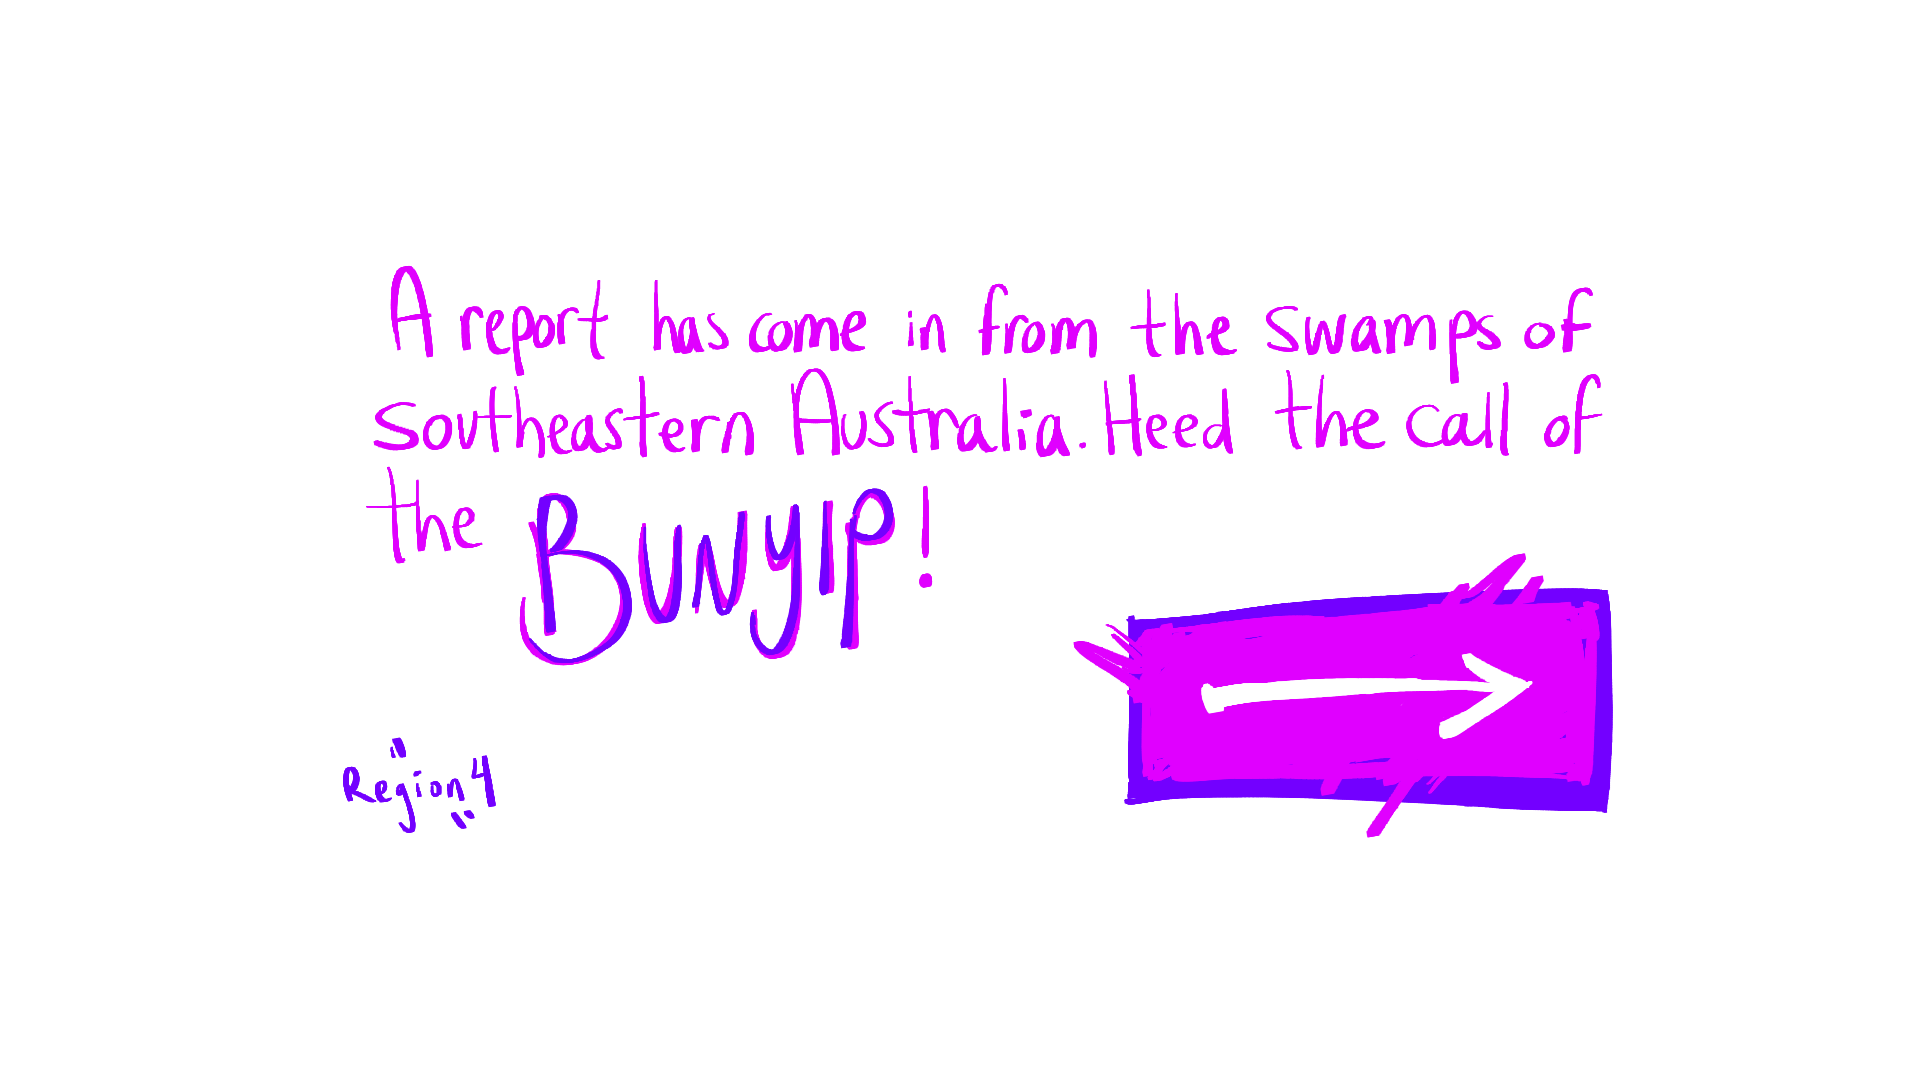 A report has come in from the swamps of
southeastern Australia. Heed the call of
the BUNYIP!
Region 4